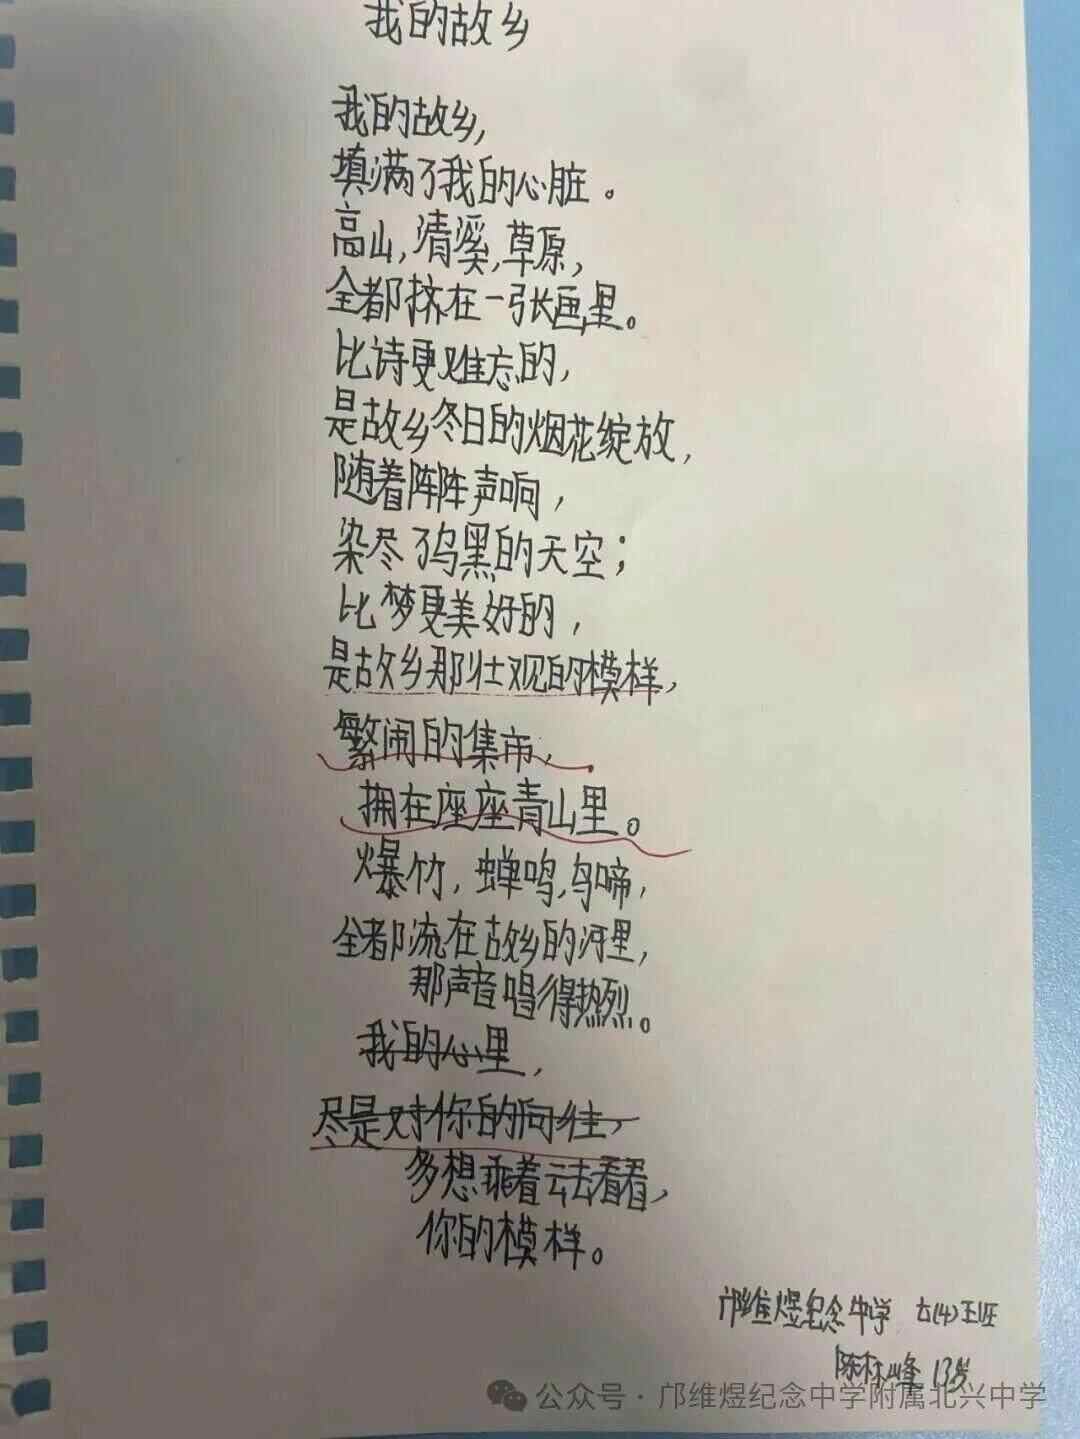 我的故乡
我的故乡,
填满了我的心脏。
高山,清溪,草原,
全都挤在一张画里。
比诗更难忘的,
是故乡冬日的烟花绽放,
随着阵阵声响,
染尽了乌黑的天空;
比梦更美好的,
是故乡那壮观的模样,
繁闹的集市,
拥在座座青山里。
爆竹,蝉鸣,鸟啼,
全都流在故乡的河里,
那声音唱得热烈。
我的心里,
尽是对你的向往,
多想乘着云去看看,
你的模样。
邝维煜纪念中学 六(4)班
陈林峰 13岁
公众号·邝维煜纪念中学附属北兴中学